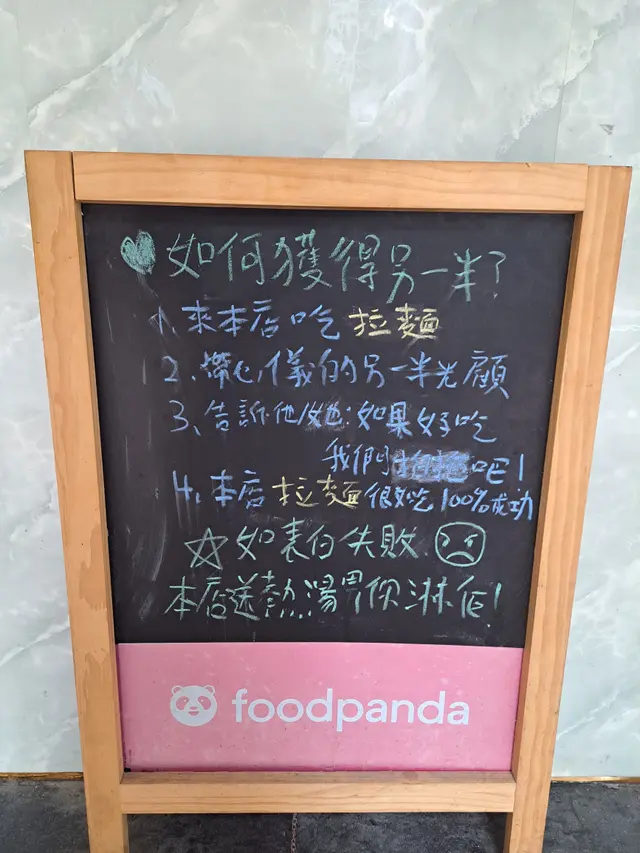 如何獲得另一半?
1.來本店吃拉麵
2、帶心儀的另一半光顧
3、告訴他/她:如果好吃
我們吧!
4.本店拉麵很好吃100%成功
如表白失敗
本店送熱湯畀你淋佢!
foodpanda